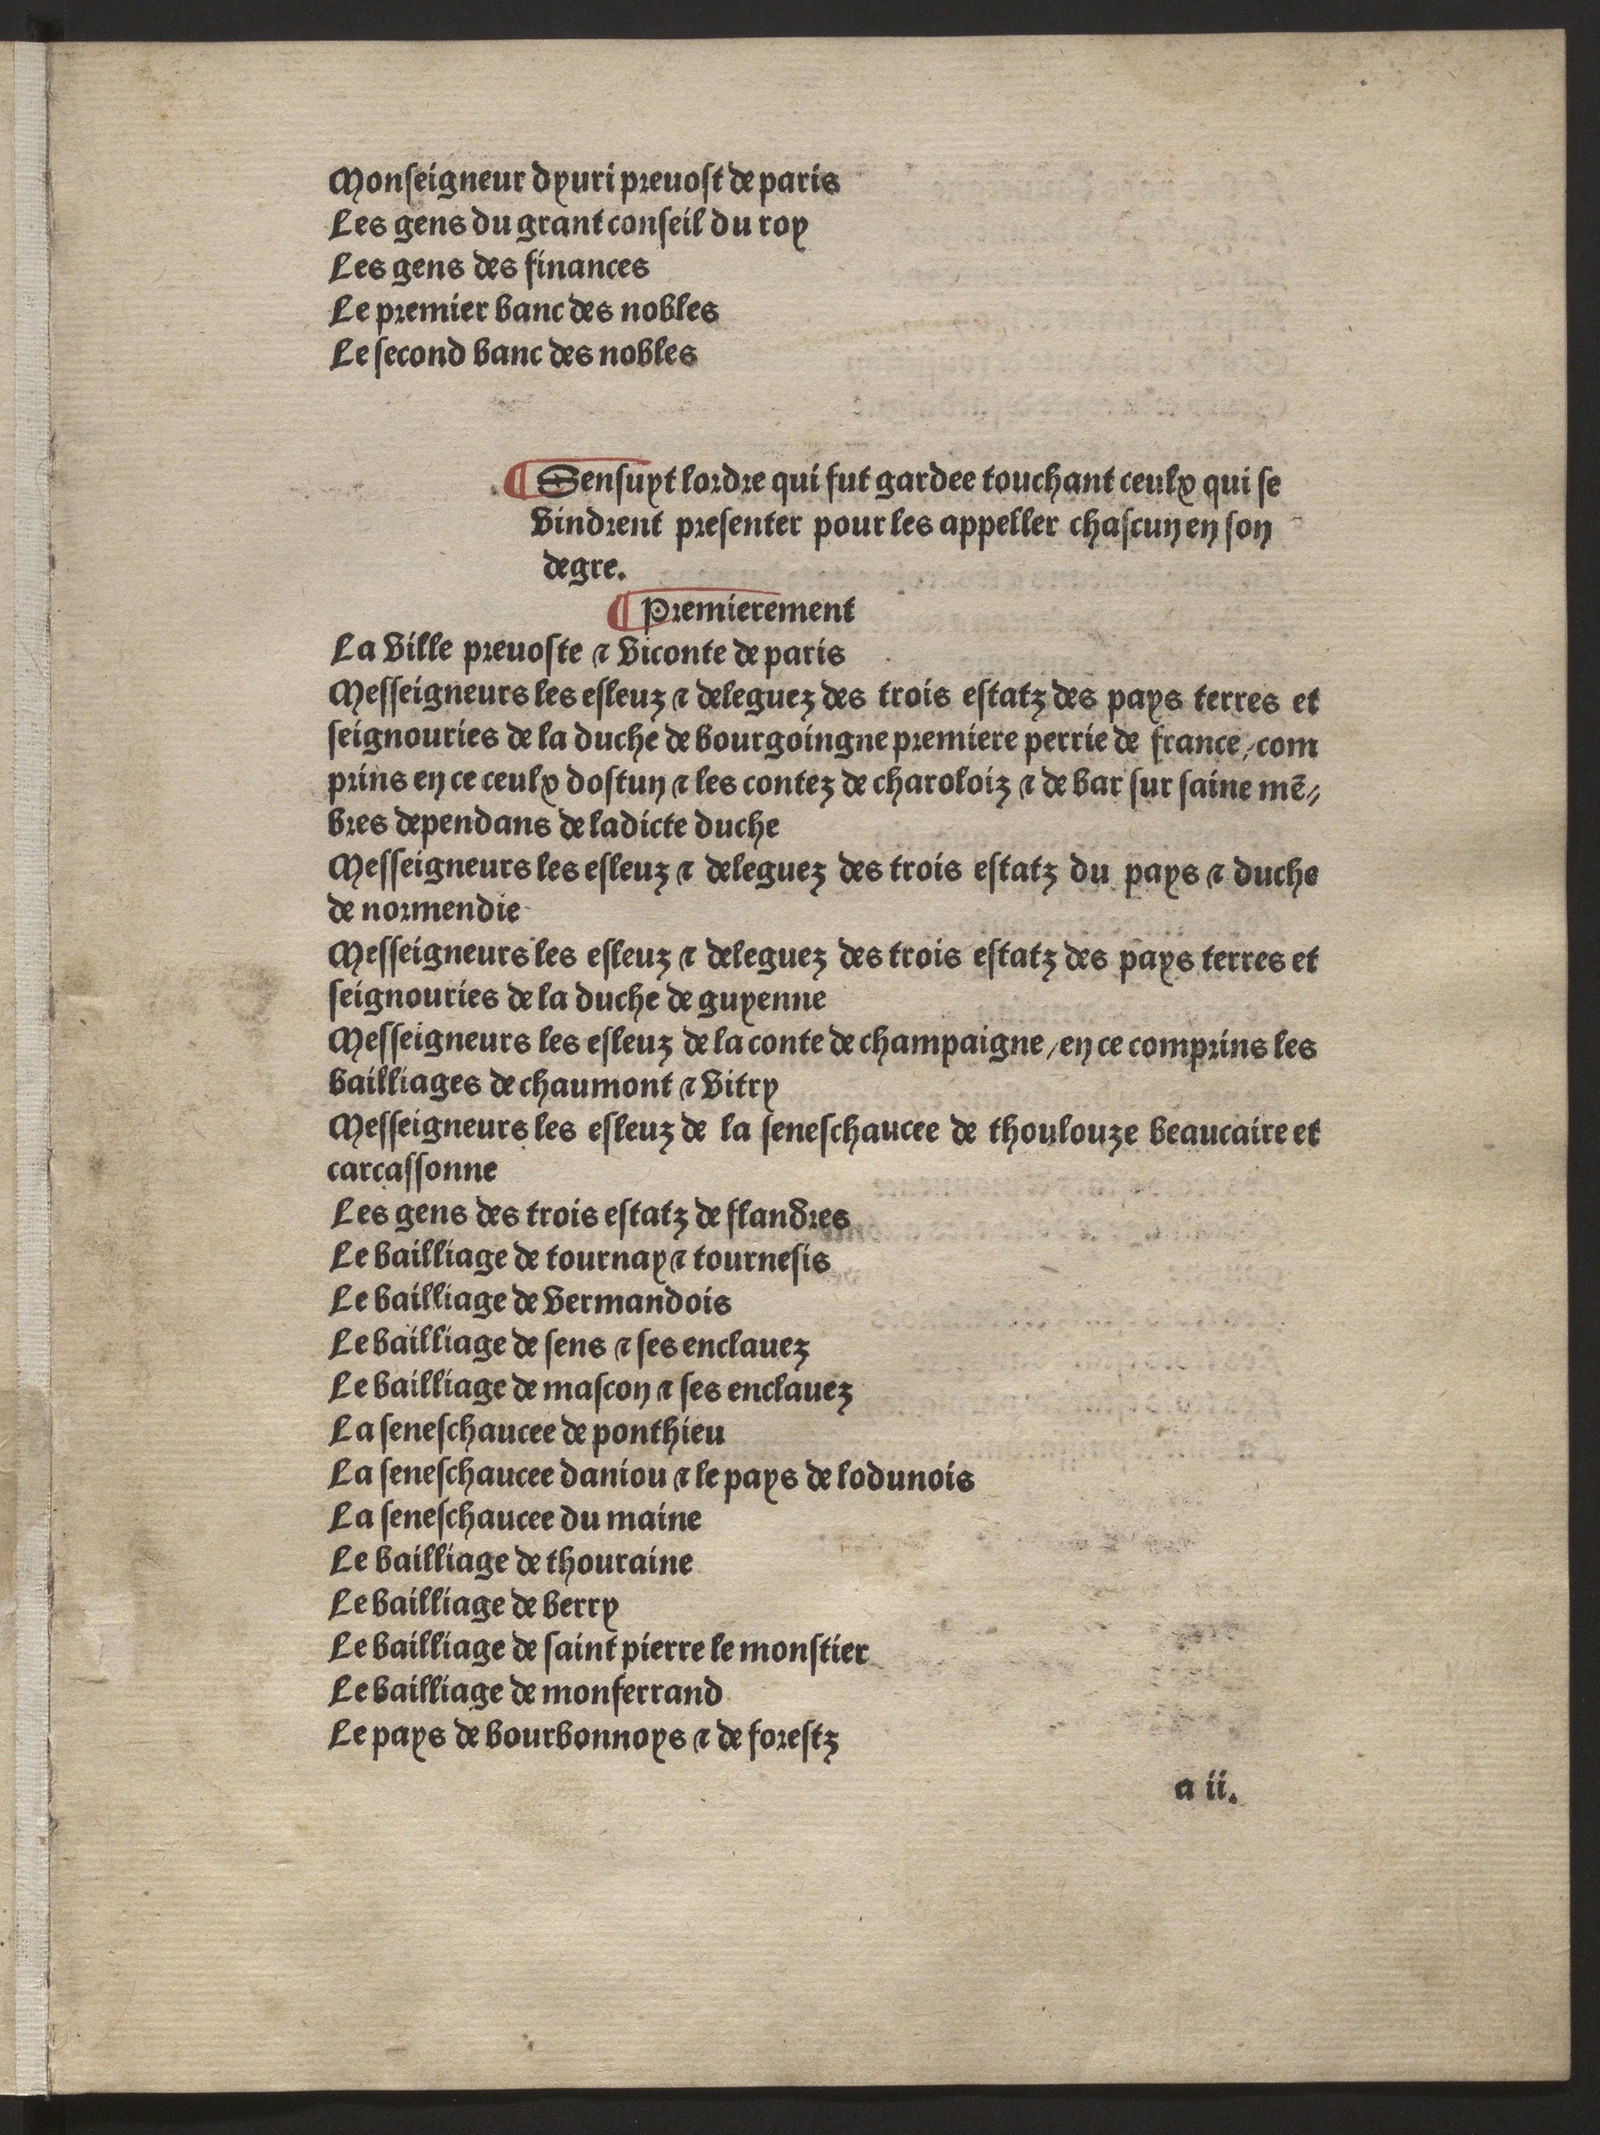 Monſeigneur dyuri preuoſt de paris
Les gens du grant conſeil du roy
Les gens des finances
Le premier banc des nobles
Le ſecond banc des nobles
¶ Senſuyt lordre qui fut gardee touchant ceulx qui ſe
vindrent preſenter pour les appeller chaſcun en ſon
degre.
¶ Premierement
La ville preuoſte ⁊ viconte de paris
Meſſeigneurs les eſleuz ⁊ deleguez des trois eſtatz des pays terres et
ſeignouries de la duche de bourgoingne premiere perrie de france/com
prins en ce ceulx doſtun ⁊ les contez de charoloiz ⁊ de bar ſur ſaine mẽ⸗
bres dependans de ladicte duche
Meſſeigneurs les eſleuz ⁊ deleguez des trois eſtatz du pays ⁊ duche
de normendie
Meſſeigneurs les eſleuz ⁊ deleguez des trois eſtatz des pays terres et
ſeignouries de la duche de guyenne
Meſſeigneurs les eſleuz de la conte de champaigne/en ce comprins les
bailliages de chaumont ⁊ vitry
Meſſeigneurs les eſleuz de la ſeneſchaucee de thoulouze beaucaire et
carcaſſonne
Les gens des trois eſtatz de flandres
Le bailliage de tournay ⁊ tourneſis
Le bailliage de vermandois
Le bailliage de ſens ⁊ ſes enclauez
Le bailliage de maſcon ⁊ ſes enclauez
La ſeneſchaucee de ponthieu
La ſeneſchaucee daniou ⁊ le pays de lodunois
La ſeneſchaucee du maine
Le bailliage de thouraine
Le bailliage de berry
Le bailliage de ſaint pierre le monſtier
Le bailliage de monferrand
Le pays de bourbonnoys ⁊ de foreſtz
a ii.